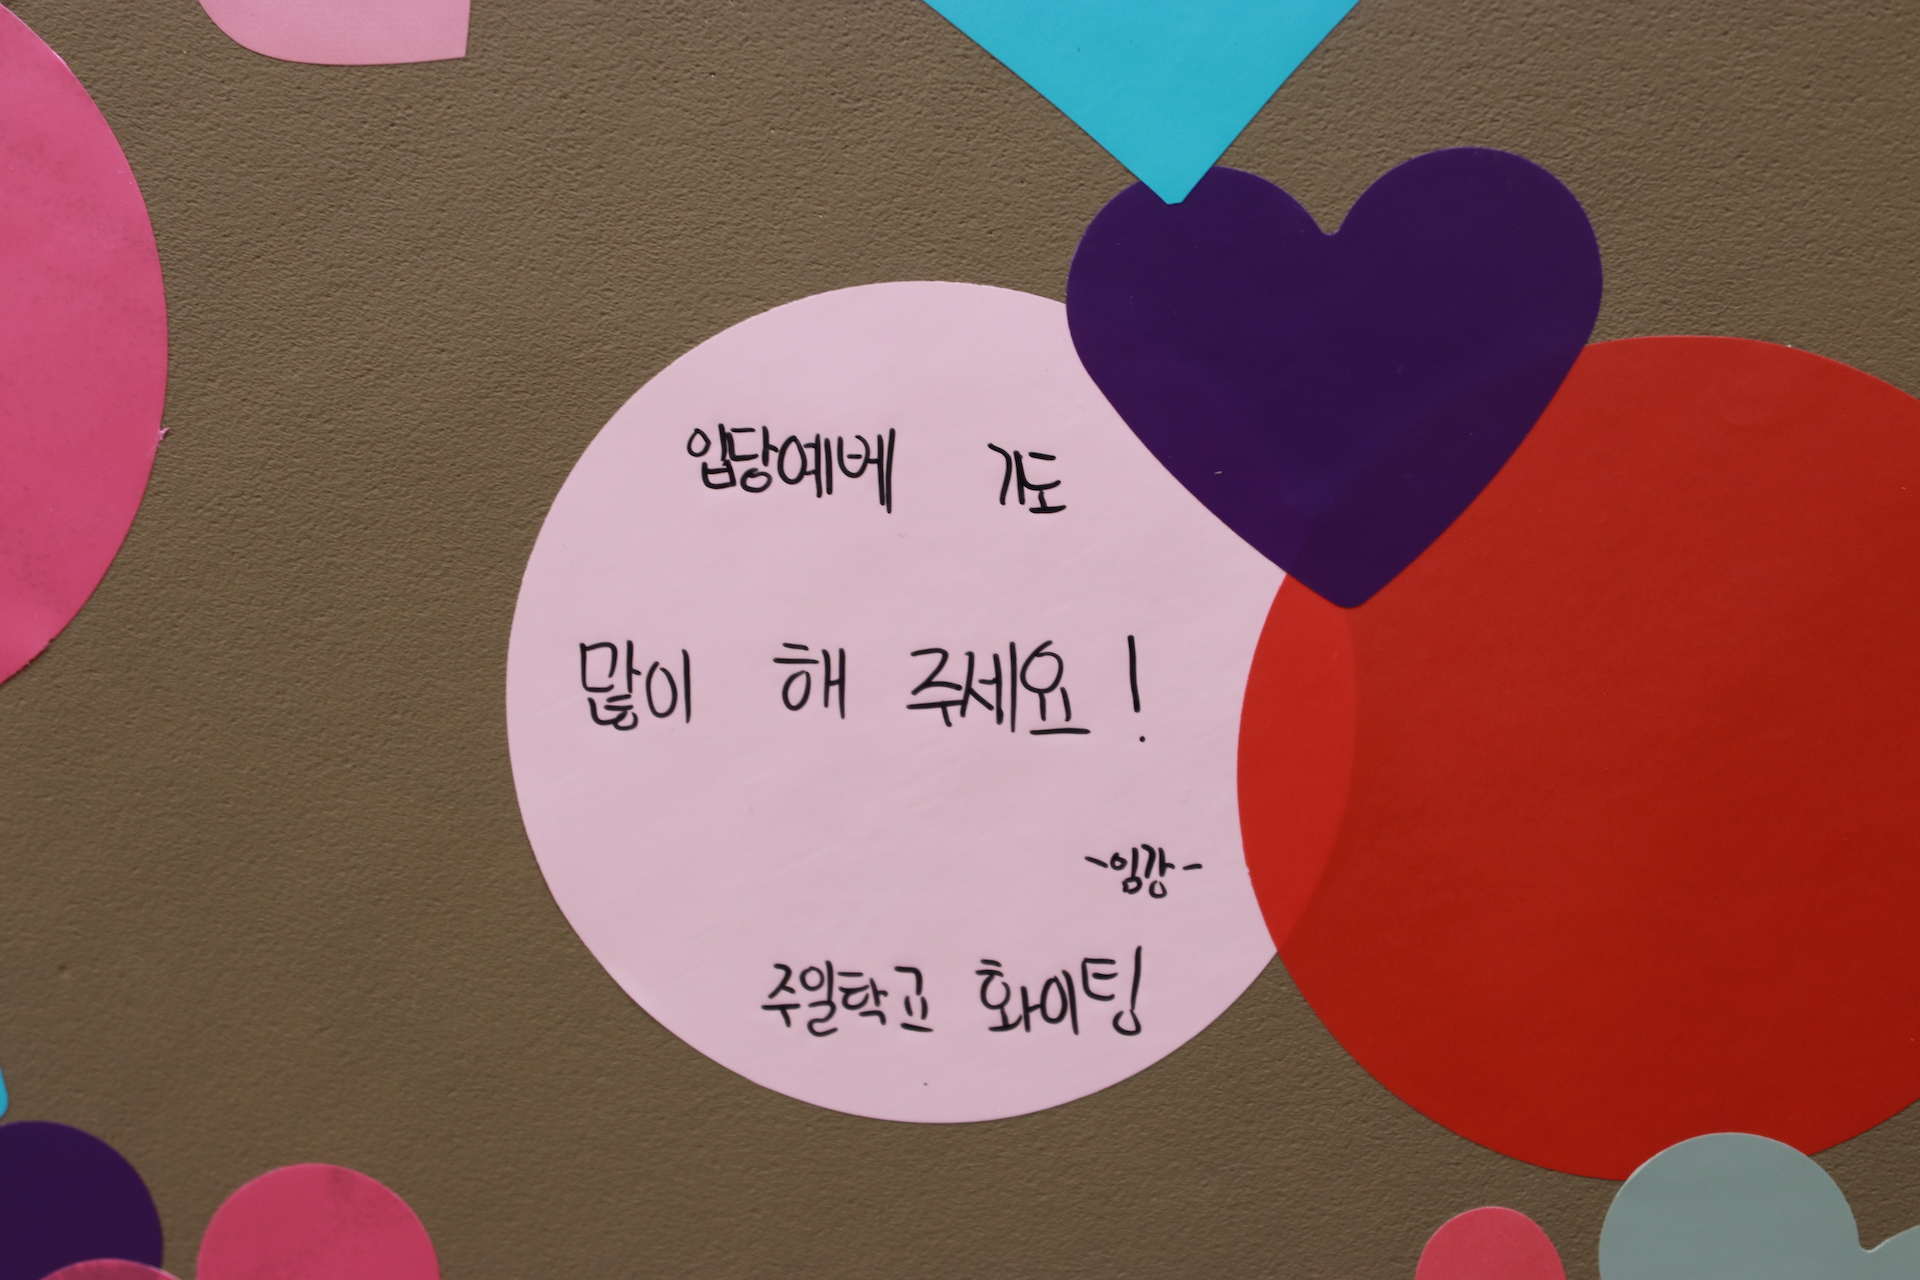 입당예베 기도
많이 해 주세요!
-임강-
주일학교 화이팅